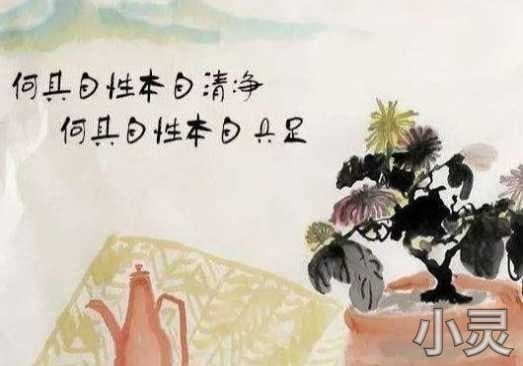 何其自性本自清净
何其自性本自具足
小灵